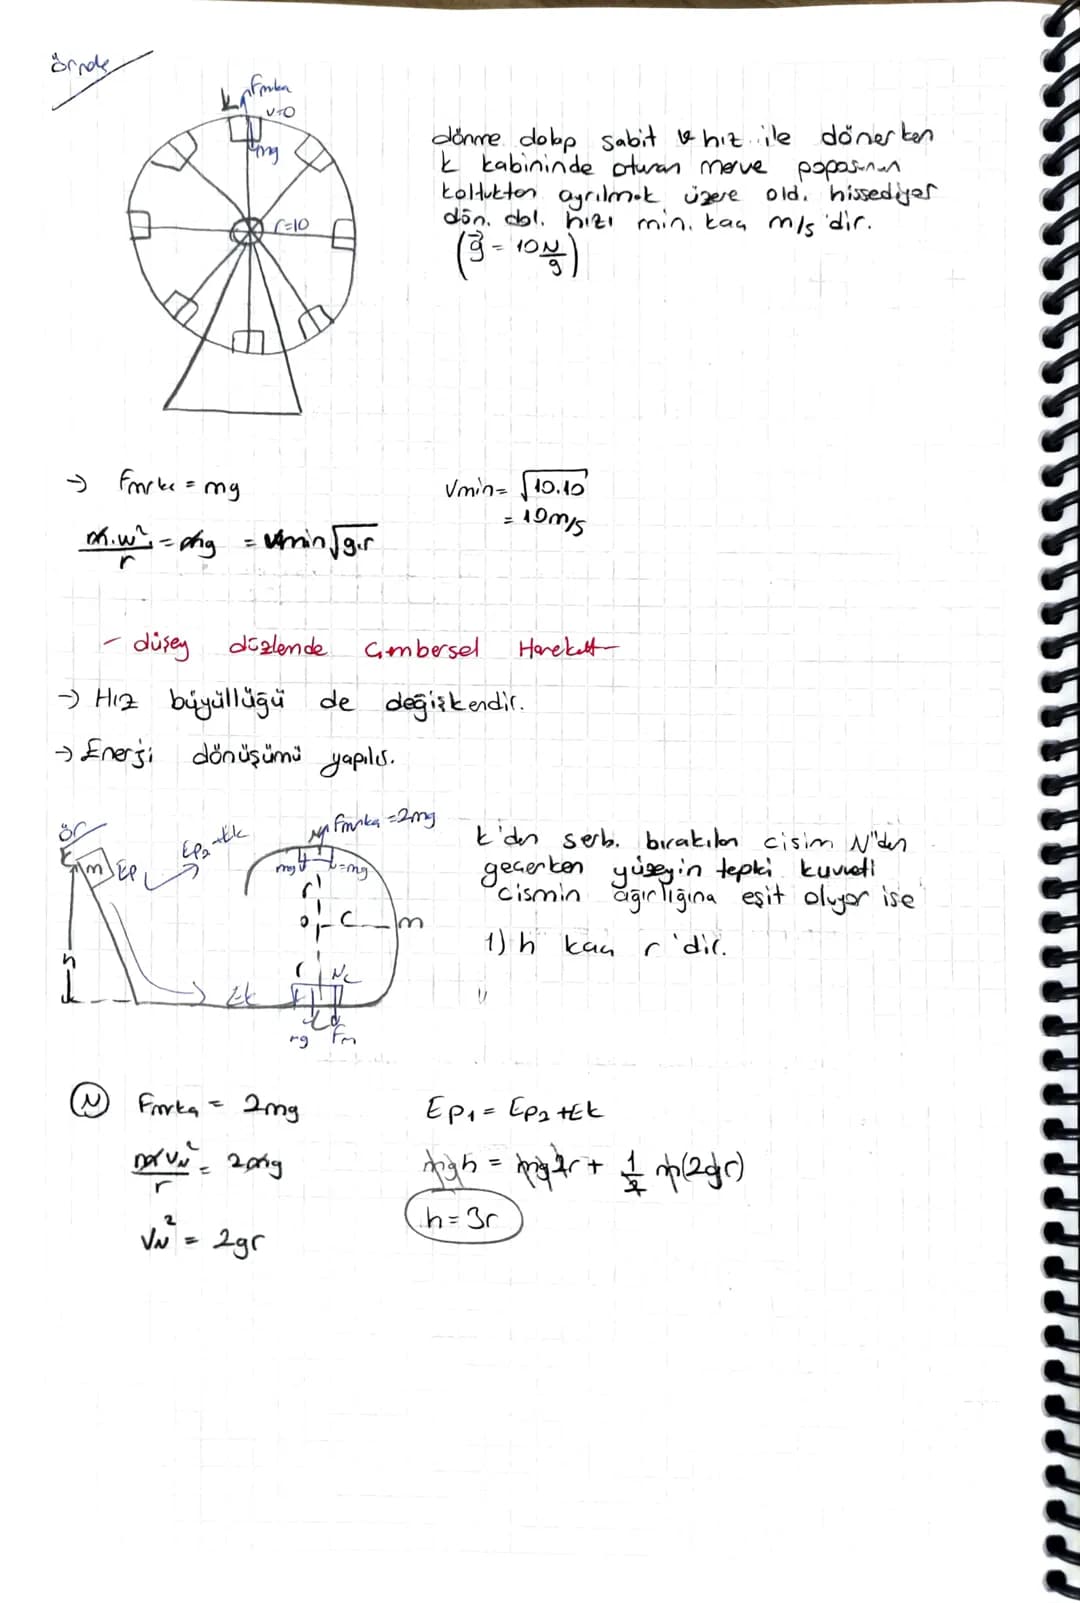 örnek
K Fmrka
N=0
mg
r=10
dönme dolap sabit v hız ile dönerken
K kabininde oturan merve poposunun
koltuktan ayrılmak üzere old. hissediyor
dön. dol. hızı min. kaç m/s 'dir.
(g = 10 N/g)
→ Fmrkz = mg
m.w²/r = mg = vmin √g.r
Vmin = √10.10
= 10m/s
- düşey düzlende Çembersel Hareket -
→ Hız büyüllüğü de değişkendir.
→ Enerji dönüşümü yapılır.
ör
K
m
Ep
Ep2+Ek
h
Ek
N Fmrka = 2mg
mg
N=mg
r
O
C
m
r
Nc
mg
Fm
K'dan serb. bırakılan cisim N'den
geçerken yüzeyin tepki kuvveti
cismin ağırlığına eşit oluyor ise
1) h kaç r 'dir.
N Fmrkz = 2mg
mVN²/r = 2mg
VN² = 2gr
Ep1 = Ep2 + Ek
mgh = mg2r + 1/2 m(2gr)
h = 3r